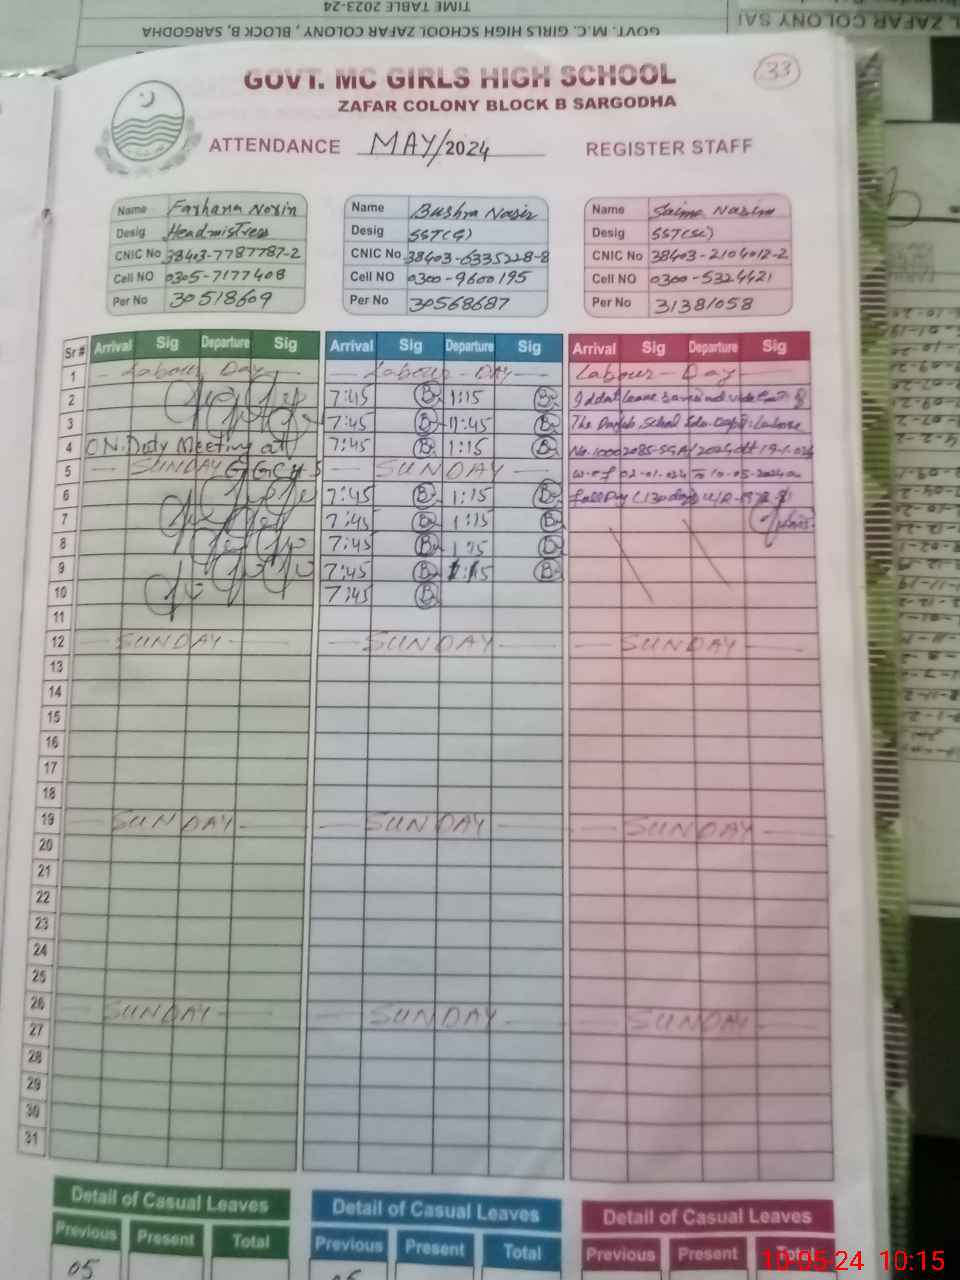 TIME TABLE 2023-24
GOVT. M.C. GIRLS HIGH SCHOOL ZAFAR COLONY, BLOCK B, SARGODHA
ZAFAR COLONY
33
GOVT. MC GIRLS HIGH SCHOOL
ZAFAR COLONY BLOCK B SARGODHA
ATTENDANCE MAY/2024 REGISTER STAFF
Name Farhana Norin
Desig Headmistress
CNIC No 38403-7787787-2
Cell NO 0305-7177408
Per No 30518609
Name Bushra Nasir
Desig SST(G)
CNIC No 38403-6335228-8
Cell NO 0300-9600195
Per No 30568687
Name Saima Nasim
Desig SST(Sc)
CNIC No 38403-2104012-2
Cell NO 0300-5324421
Per No 31381058
Sr # Arrival Sig Departure Sig Arrival Sig Departure Sig Arrival Sig Departure Sig
1 Labour Day Labour - DAY Labour - Day
2 7:45 B 1:15 B Iddat leave
3 7:45 B 11:45 B The Punjab School Edu. Deptt: Lahore
4 ON. Duty Meeting at 7:45 B 1:15 B
5 SUNDAY GGCHS SUNDAY w.e.f 02-01-024 To 10-05-2024 on
6 7:45 B 1:15 B full Pay (130 days)
7 7:45 B 1:15 B
8 7:45 B 1:15 B
9 7:45 B 1:15 B
10 7:45 B
11
12 SUNDAY SUNDAY SUNDAY
13
14
15
16
17
18
19 SUNDAY SUNDAY SUNDAY
20
21
22
23
24
25
26 SUNDAY SUNDAY SUNDAY
27
28
29
30
31
Detail of Casual Leaves Detail of Casual Leaves Detail of Casual Leaves
Previous Present Total Previous Present Total Previous Present Total
05
10-05-24 10:15